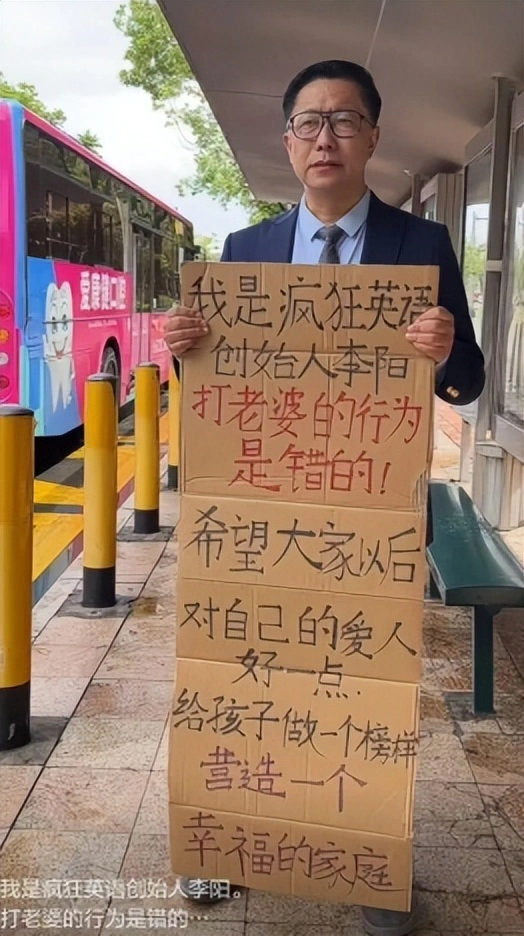 爱康健口腔
我是疯狂英语
创始人李阳
打老婆的行为
是错的！
希望大家以后
对自己的爱人
好一点.
给孩子做一个榜样
营造一个
幸福的家庭
我是疯狂英语创始人李阳。
打老婆的行为是错的…